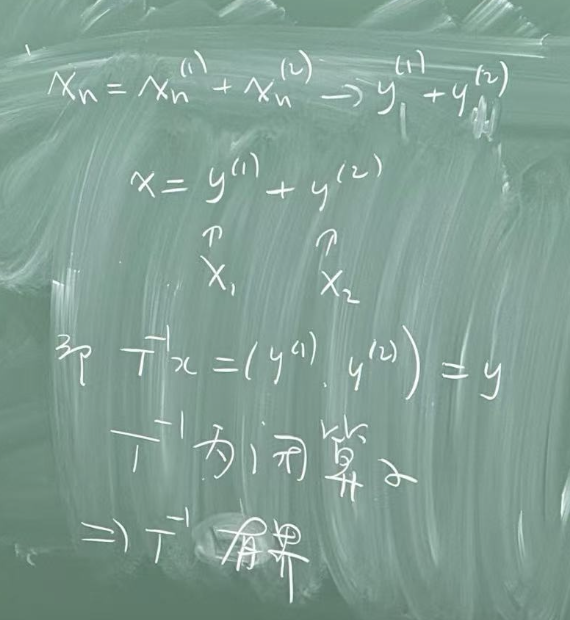 xₙ = xₙ⁽¹⁾ + xₙ⁽²⁾ → y⁽¹⁾ + y⁽²⁾
x = y⁽¹⁾ + y⁽²⁾
↑ ↑
X₁ X₂
即 T⁻¹x = (y⁽¹⁾, y⁽²⁾) = y
T⁻¹为闭算子
⇒ T⁻¹ 有界